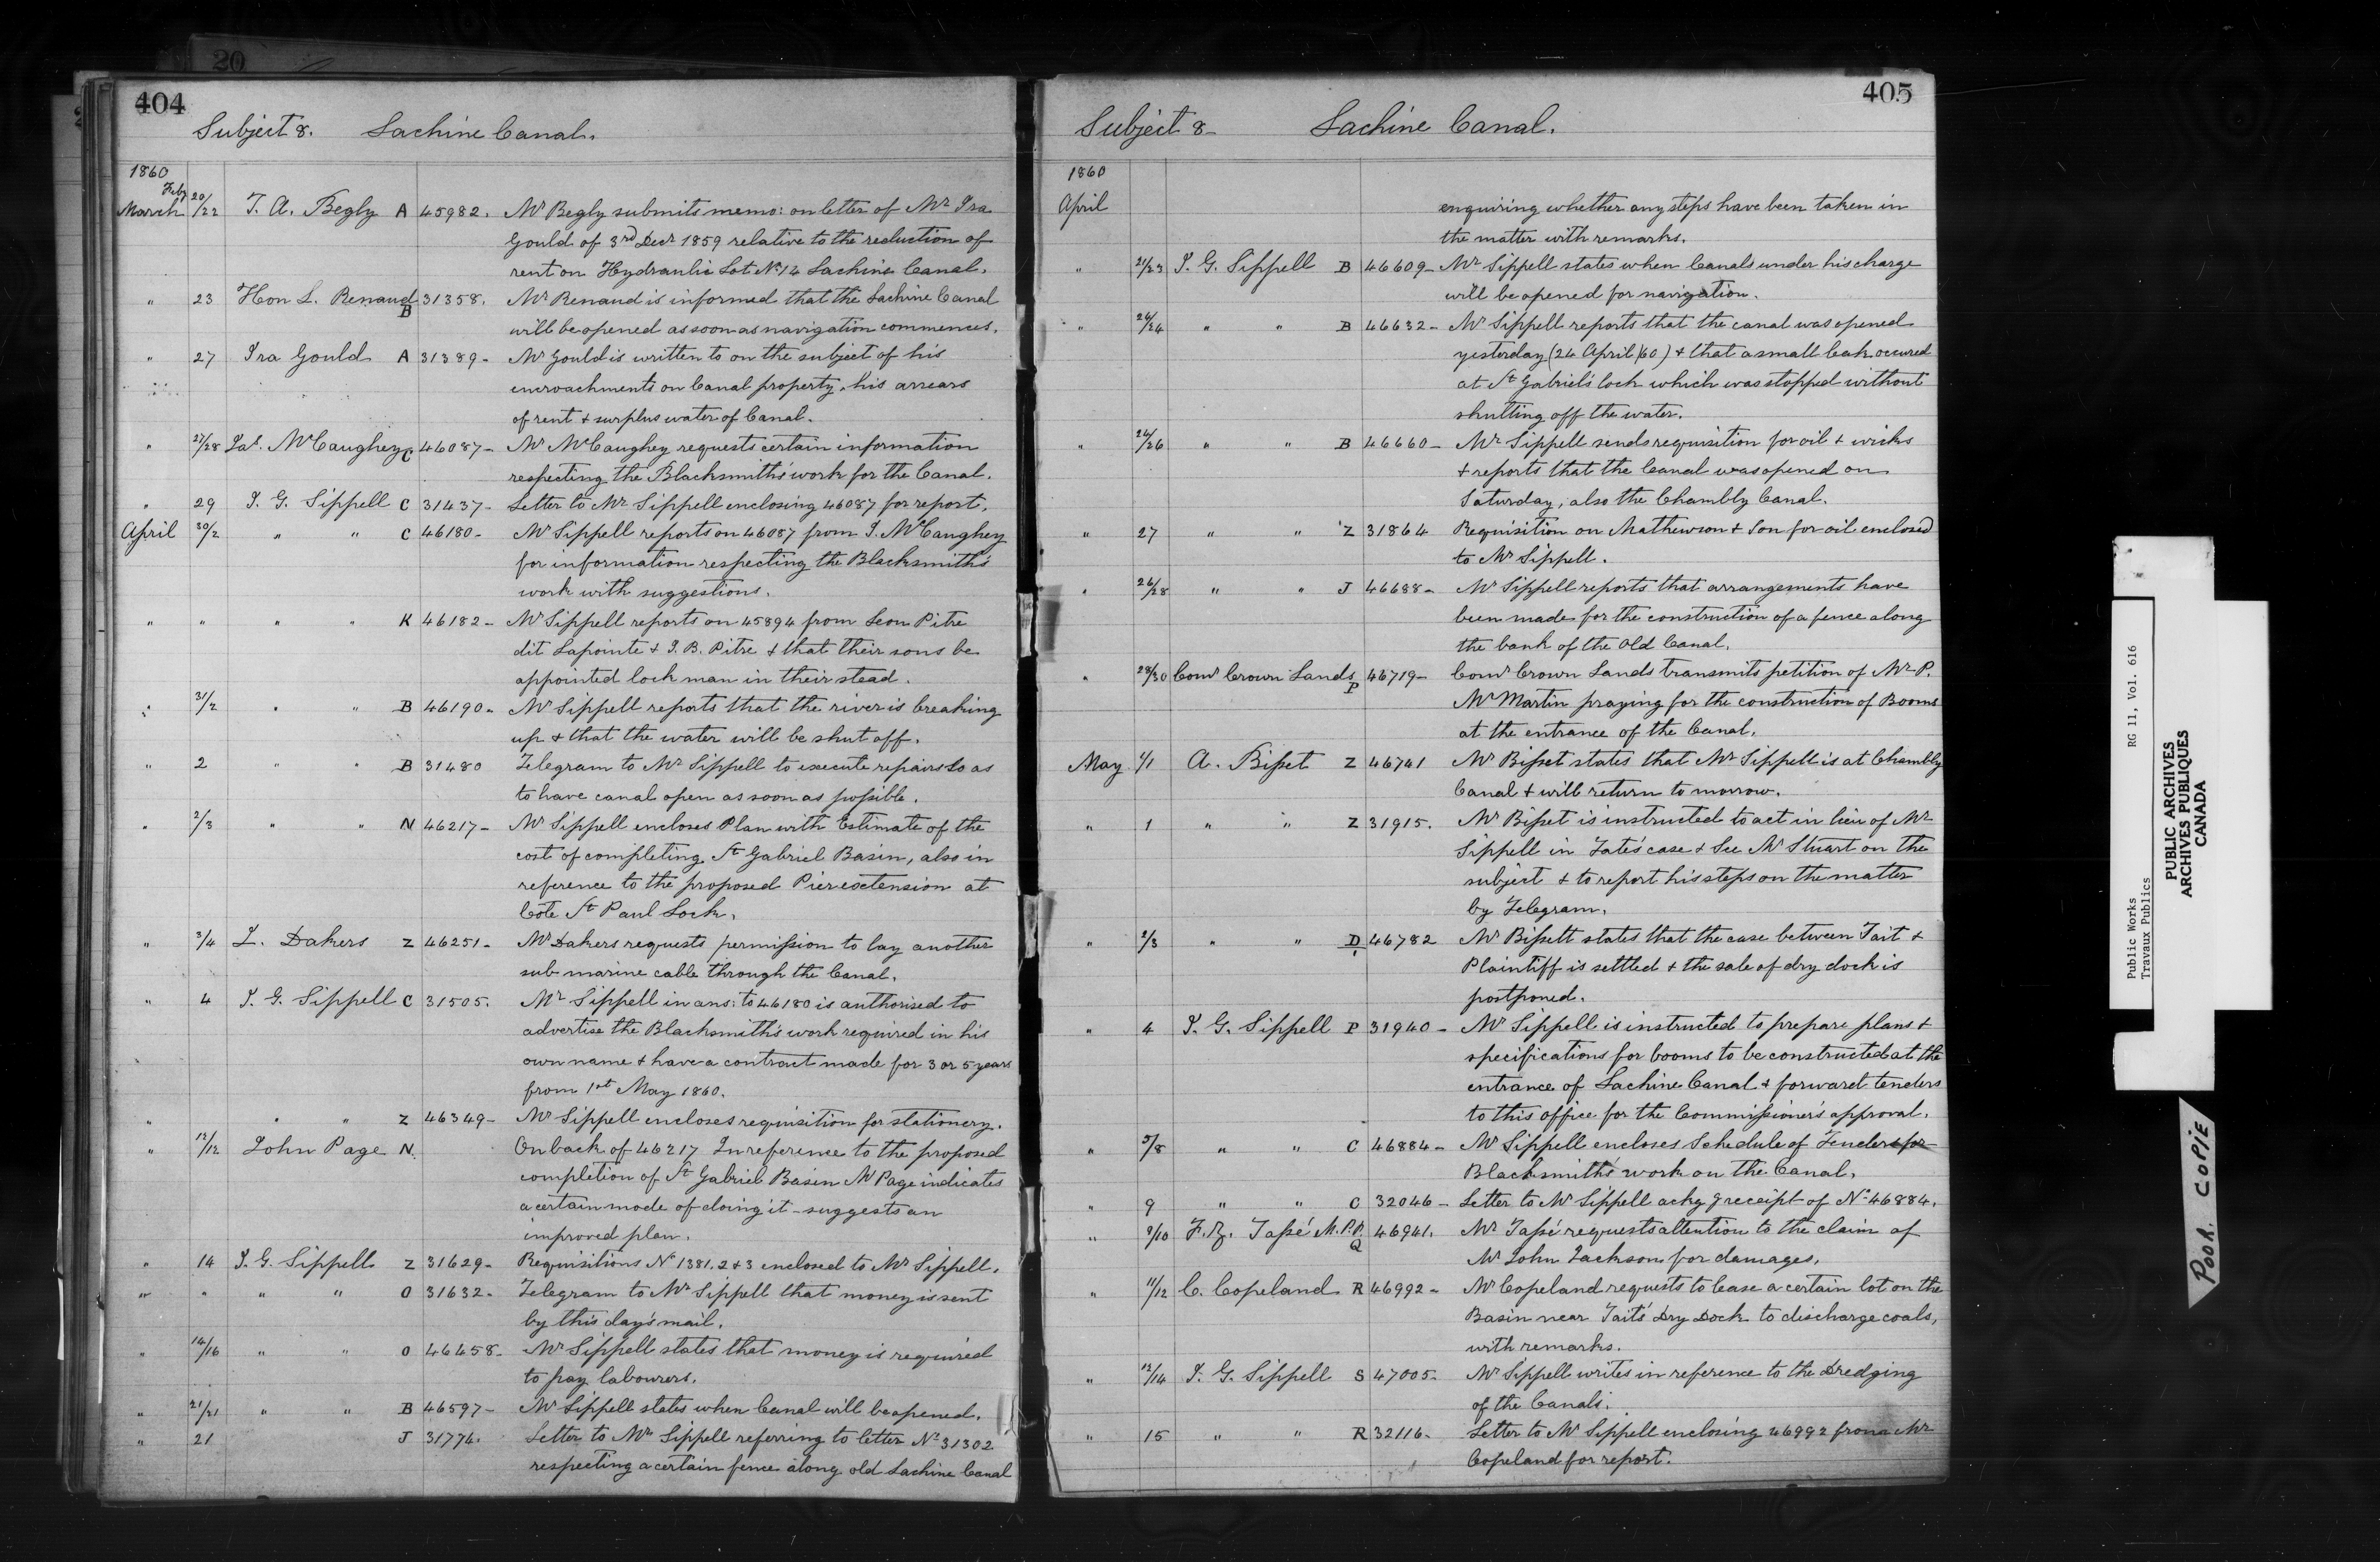 20
404
Subject 8. Lachine Canal.
1860
Feby
March 20/22 T. A. Begly A 45982. Mr Begly submits memo: on letter of Mr Ira
Gould of 3rd Decr 1859 relative to the reduction of
rent on Hydraulic Lot No 14 Lachine Canal.
" 23 Hon L. Renaud B 31358. Mr Renaud is informed that the Lachine Canal
will be opened as soon as navigation commences.
" 27 Ira Gould A 31389- Mr Gould is written to on the subject of his
encroachments on Canal property, his arrears
of rent & surplus water of Canal.
" 27/28 Jas. McCaughey C 46087- Mr McCaughey requests certain information
respecting the Blacksmith's work for the Canal.
" 29 J. G. Sippell C 31437- Letter to Mr Sippell enclosing 46087 for report.
April 30/2 " " C 46180- Mr Sippell reports on 46087 from J. McCaughey
for information respecting the Blacksmith's
work with suggestions.
" " " " K 46182- Mr Sippell reports on 45894 from Leon Pitre
dit Lapointe & J. B. Pitre & that their sons be
appointed lock man in their stead.
" 31/2 " " B 46190- Mr Sippell reports that the river is breaking
up & that the water will be shut off.
" 2 " " B 31480 Telegram to Mr Sippell to execute repairs so as
to have canal open as soon as possible.
" 2/3 " " N 46217- Mr Sippell encloses Plan with Estimate of the
cost of completing St Gabriel Basin, also in
reference to the proposed Pier extension at
Côte St Paul Lock.
" 3/4 L. Dakers Z 46251- Mr Dakers requests permission to lay another
sub-marine cable through the Canal.
" 4 J. G. Sippell C 31505. Mr Sippell in ans: to 46180 is authorised to
advertise the Blacksmith's work required in his
own name & have a contract made for 3 or 5 years
from 1st May 1860.
" " " Z 46349- Mr Sippell encloses requisition for stationery.
" 12/12 John Page N. On back of 46217 In reference to the proposed
completion of St Gabriel Basin Mr Page indicates
a certain mode of doing it - suggests an
improved plan.
" 14 J. G. Sippell Z 31629- Requisitions No 1381. 2 & 3 enclosed to Mr Sippell.
" " " " O 31632- Telegram to Mr Sippell that money is sent
by this day's mail.
" 14/16 " " O 46458- Mr Sippell states that money is required
to pay labourers.
" 21/21 " " B 46597- Mr Sippell states when Canal will be opened.
" 21 J 31774. Letter to Mr Sippell referring to letter No 31302
respecting a certain fence along old Lachine Canal
405
Subject 8- Lachine Canal.
1860
April enquiring whether any steps have been taken in
the matter with remarks.
" 21/23 J. G. Sippell B 46609- Mr Sippell states when Canals under his charge
will be opened for navigation.
" 24/24 " " B 46632- Mr Sippell reports that the canal was opened
yesterday (24 April /60) & that a small leak occured
at St Gabriel's lock which was stopped without
shutting off the water.
" 24/26 " " B 46660- Mr Sippell sends requisition for oil & wicks
& reports that the Canal was opened on
Saturday, also the Chambly Canal.
" 27 " " Z 31864 Requisition on Mathewson & Son for oil enclosed
to Mr Sippell.
" 26/28 " " J 46688- Mr Sippell reports that arrangements have
been made for the construction of a fence along
the bank of the Old Canal.
" 28/30 Comr Crown Lands P 46719- Comr Crown Lands transmits petition of Mr P.
McMartin praying for the construction of Booms
at the entrance of the Canal.
May 1/1 A. Bisset Z 46741 Mr Bisset states that Mr Sippell is at Chambly
Canal & will return to morrow.
" 1 " " Z 31915. Mr Bisset is instructed to act in lieu of Mr
Sippell in Tate's case & See Mr Stuart on the
subject & to report his steps on the matter
by Telegram.
" 2/3 " " D 46782 Mr Bissett states that the case between Tait &
Plaintiff is settled & the sale of dry dock is
postponed.
" 4 J. G. Sippell P 31940- Mr Sippell is instructed to prepare plans &
specifications for booms to be constructed at the
entrance of Lachine Canal & forward tenders
to this office for the Commissioner's approval.
" 5/8 " " C 46884- Mr Sippell encloses Schedule of Tenders for
Blacksmith's work on the Canal.
" 9 " " C 32046- Letter to Mr Sippell ackg receipt of No 46884.
" 9/10 F. Z. Tassé M.P.P. Q 46941. Mr Tassé requests attention to the claim of
Mr John Jackson for damages.
" 11/12 C. Copeland R 46992- Mr Copeland requests to lease a certain lot on the
Basin near Tait's Dry Dock to discharge coals,
with remarks.
" 12/14 J. G. Sippell S 47005- Mr Sippell writes in reference to the Dredging
of the Canals.
" 15 " " R 32116- Letter to Mr Sippell enclosing 46992 from Mr
Copeland for report.
Public Works
Travaux Publics
RG 11, Vol. 616
PUBLIC ARCHIVES
ARCHIVES PUBLIQUES
CANADA
POOR COPIE